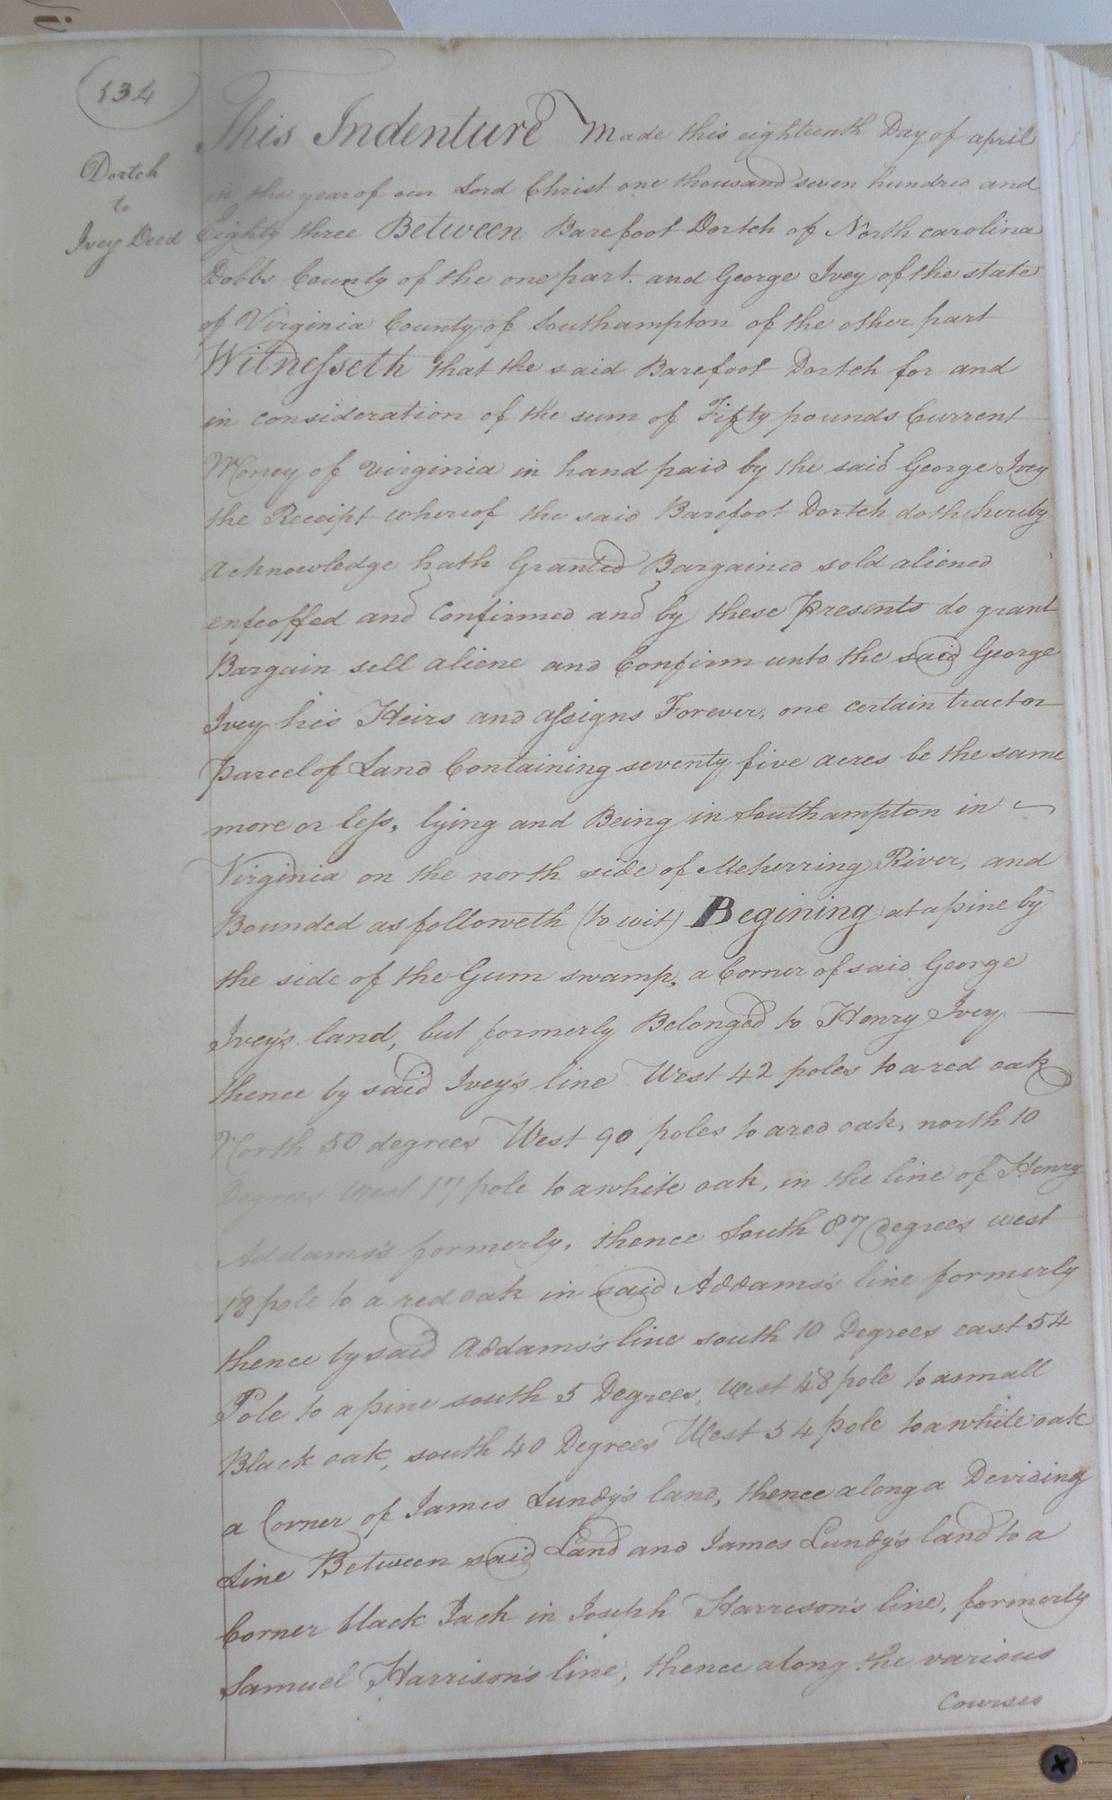 134
Dortch
to
Ivey Deed
This Indenture Made this eighteenth Day of april
in the year of our Lord Christ one thousand seven hundred and
Eighty three Between Barefoot Dortch of North carolina
Dobbs County of the one part. and George Ivey of the state
of Virginia County of Southampton of the other part
Witnesseth that the said Barefoot Dortch for and
in consideration of the sum of Fifty pounds Current
Money of Virginia in hand paid by the said George Ivey
the Receipt whereof the said Barefoot Dortch doth hereby
acknowledge hath Granted Bargained sold aliened
enfeoffed and Confirmed and by these Presents do grant
Bargain sell aliene and Confirm unto the said George
Ivey his Heirs and assigns Forever, one certain tract or
Parcel of Land Containing seventy five acres be the same
more or less, lying and Being in Southampton in
Virginia on the north side of Meherring River, and
Bounded as followeth (to wit) Begining at a pine by
the side of the Gum swamp, a Corner of said George
Ivey's land, but formerly Belonged to Henry Ivey
thence by said Ivey's line West 42 poles to a red oak
North 50 degrees West 90 poles to a red oak, north 10
Degrees West 17 pole to a white oak, in the line of Henry
Addams's formerly, thence South 87 degrees west
18 pole to a red oak in said Addams's line formerly
thence by said Addams's line south 10 Degrees east 54
Pole to a pine south 5 Degrees, West 48 pole to a small
Black oak, south 40 Degrees West 54 pole to a white oak
a Corner of James Lundy's land, thence along a Deviding
Line Between said Land and James Lundy's land to a
Corner black Jack in Joseph Harreson's line, formerly
Samuel Harrison's line, thence along the various
Courses